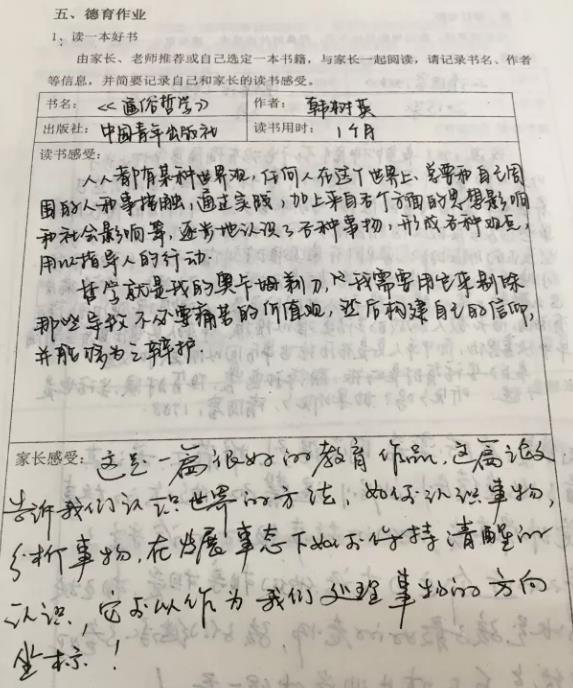 五、德育作业
1、读一本好书
由家长、老师推荐或自己选定一本书籍，与家长一起阅读，请记录书名、作者
等信息，并简要记录自己和家长的读书感受。
书名：《通俗哲学》 作者：韩树英
出版社：中国青年出版社 读书用时：1个月
读书感受：
人人都有某种世界观，任何人在这个世界上，总要和自己周
围的人和事接触，通过实践，加上来自各个方面的思想影响
和社会影响等，逐步地认识了各种事物，形成各种观点，
用以指导人的行动.
哲学就是我的奥卡姆剃刀，我需要用它来剔除
那些导致不必要痛苦的价值观，然后构建自己的信仰，
并能够为之辩护.
家长感受：这是一篇很好的教育作品，这篇论文
告诉我们认识世界的方法，如何认识事物，
分析事物，在发展事态下如何保持清醒的
认识，它可以作为我们处理事物的方向
坐标！